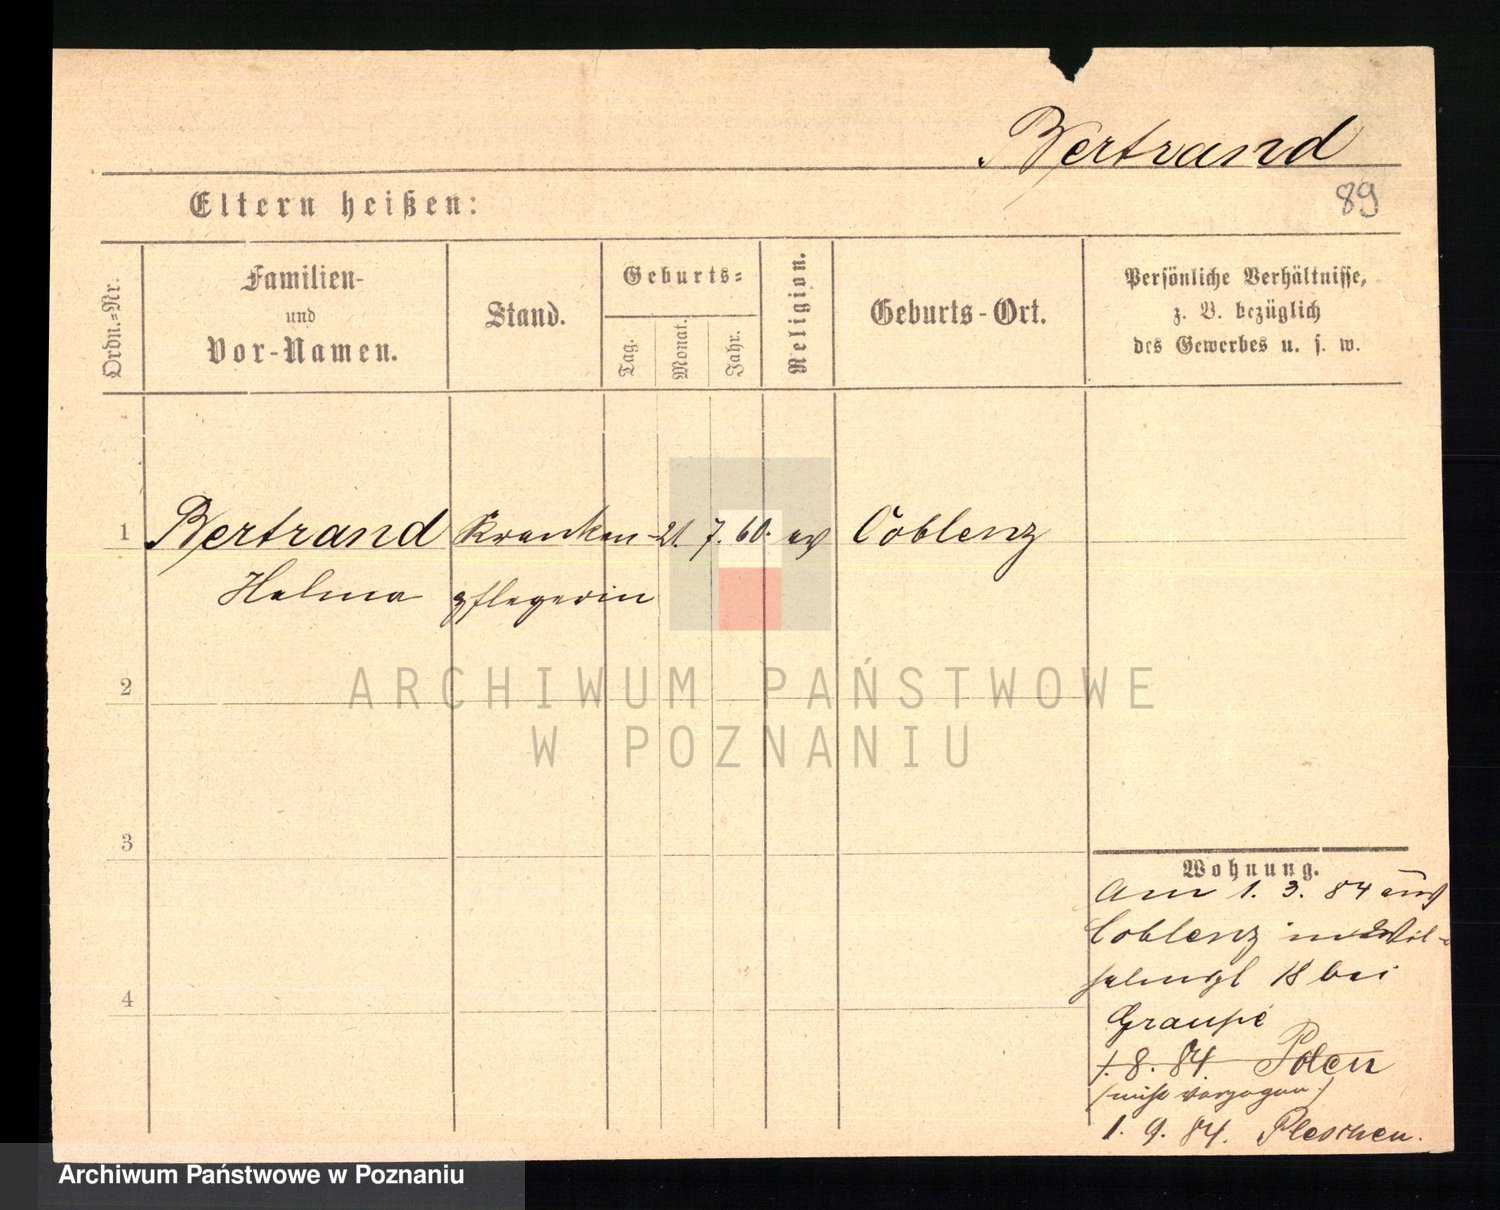 Bertrand
89
Eltern heißen:
Ordn.=Nr.
Familien-
und
Vor-Namen.
Stand.
Geburts=
Tag.
Monat.
Jahr.
Religion.
Geburts-Ort.
Persönliche Verhältnisse,
z. B. bezüglich
des Gewerbes u. s. w.
1 Bertrand Kranken- 21. 7. 60. ev Coblenz
Helma pflegerin
2
ARCHIWUM PAŃSTWOWE
W POZNANIU
3
Wohnung.
Am 1. 3. 84 aus
Coblenz in Wil-
helmspl 18 bei
Graupé
1. 8. 84. Polen
(nicht verzogen)
4
1. 9. 84. Pleschen.
Archiwum Państwowe w Poznaniu